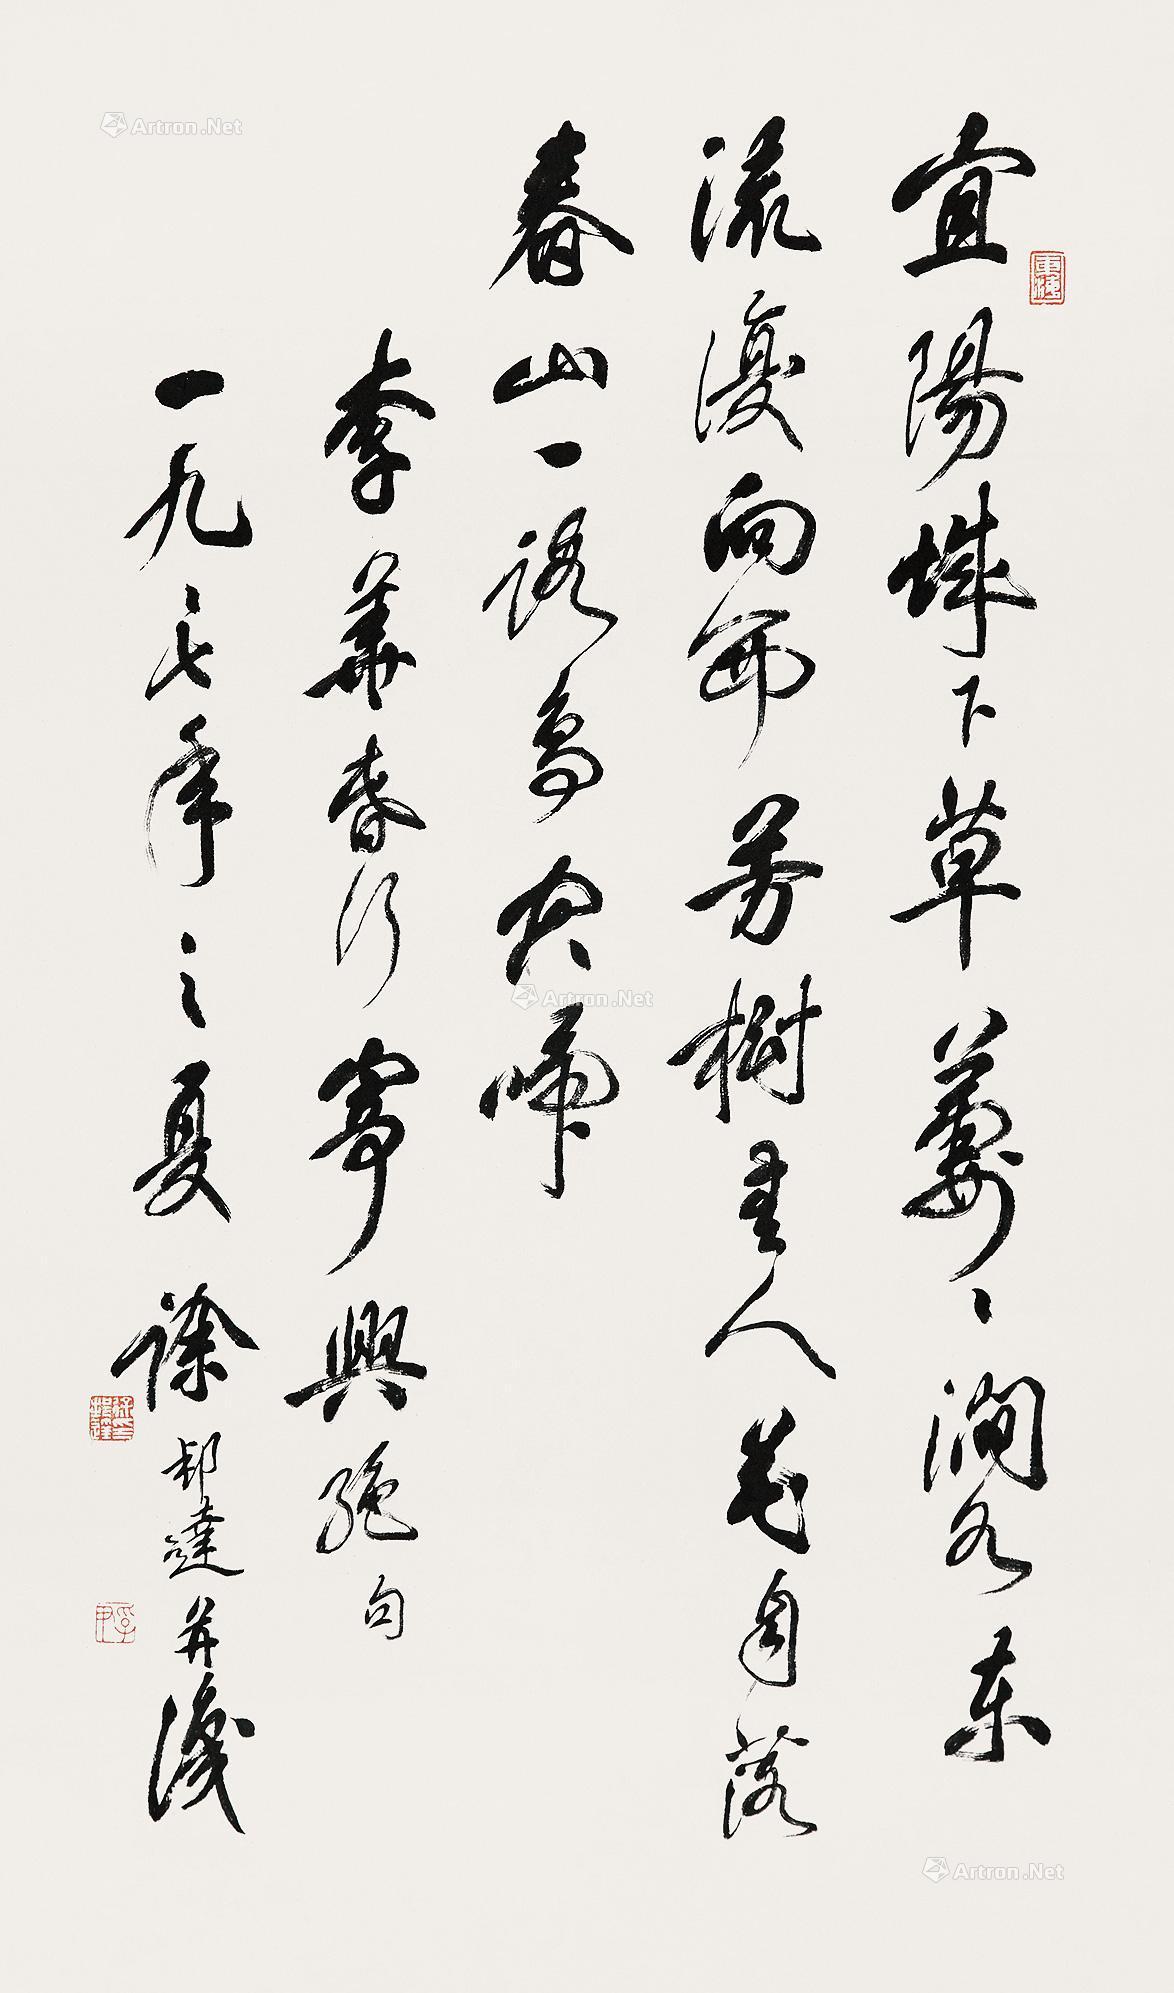 宜陽城下草萋〻澗水東
流復向西芳樹無人花自落
春山一路鳥空啼
李華春行寄興絕句
一九〻七年之夏徐邦達并識
Artron.Net
Artron.Net
Artron.Net